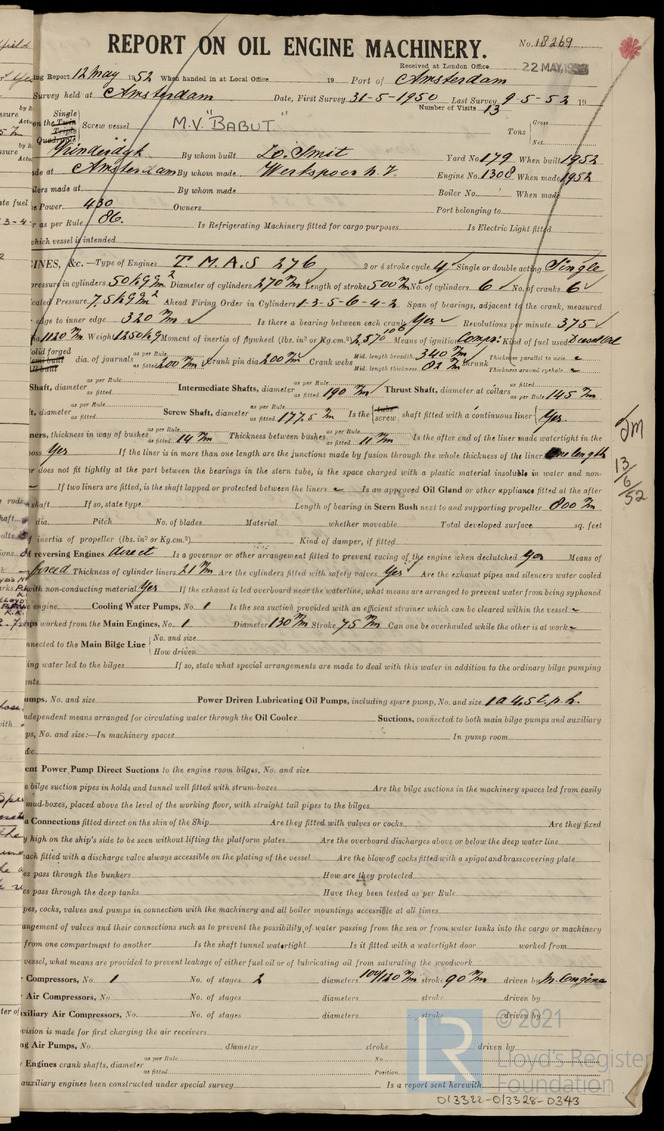 REPORT ON OIL ENGINE MACHINERY.
No. 18269
Received at London Office
22 MAY
Report 12 May 1952 When handed in at Local Office 19 Port of Amsterdam
Survey held at Amsterdam Date, First Survey 31-5-1950 Last Survey 9-5-52 19
Number of Visits 13
Single
on the Twin
Triple
Quadruple
Screw vessel M.V. "BABUT" Tons Gross
Net
Kinderdijk By whom built Zo. Smit Yard No 179 When built 1952
de at Amsterdam By whom made Werkspoor N.V. Engine No. 1308 When made 1952
lers made at By whom made Boiler No. When made
e Power 430 Owners Port belonging to
r as per Rule 86. Is Refrigerating Machinery fitted for cargo purposes Is Electric Light fitted
which vessel is intended
INES, &c. —Type of Engines T.M.A.S 276 2 or 4 stroke cycle 4 Single or double acting Single
pressure in cylinders 50 kg m² Diameter of cylinders 270 m/m Length of stroke 500 m/m No. of cylinders 6 No. of cranks 6
cated Pressure 7.5 kg m² Ahead Firing Order in Cylinders 1-3-5-6-4-2 Span of bearings, adjacent to the crank, measured
edge to inner edge 320 m/m Is there a bearing between each crank Yes Revolutions per minute 375
1120 m/m Weight 1250 kg Moment of inertia of flywheel (lbs. in² or Kg.cm.²) Means of ignition Compr. Kind of fuel used Diesel oil
dia. of journals as per Rule as fitted 200 m/m Crank pin dia 200 m/m Crank webs Mid. length breadth 340 m/m Mid. length thickness 82 m/m shrunk Thickness parallel to axis Thickness around eyehole
Shaft, diameter as per Rule as fitted Intermediate Shafts, diameter as per Rule as fitted 190 m/m Thrust Shaft, diameter at collars as per Rule as fitted 145 m/m
t, diameter as per Rule as fitted Screw Shaft, diameter as per Rule as fitted 177.5 m/m Is the tube screw shaft fitted with a continuous liner Yes.
ners, thickness in way of bushes as per Rule as fitted 14 m/m Thickness between bushes as per Rule as fitted 11 m/m Is the after end of the liner made watertight in the
oss Yes If the liner is in more than one length are the junctions made by fusion through the whole thickness of the liner one length
r does not fit tightly at the part between the bearings in the stern tube, is the space charged with a plastic material insoluble in water and non-
If two liners are fitted, is the shaft lapped or protected between the liners Is an approved Oil Gland or other appliance fitted at the after
shaft If so, state type Length of bearing in Stern Bush next to and supporting propeller 800 m/m
dia. Pitch No. of blades Material whether moveable Total developed surface sq. feet
of inertia of propeller (lbs. in² or Kg.cm.²) Kind of damper, if fitted
reversing Engines direct Is a governor or other arrangement fitted to prevent racing of the engine when declutched Yes Means of
forced Thickness of cylinder liners 21 m/m Are the cylinders fitted with safety valves Yes Are the exhaust pipes and silencers water cooled
with non-conducting material Yes If the exhaust is led overboard near the waterline, what means are arranged to prevent water from being syphoned
engine. Cooling Water Pumps, No. 1 Is the sea suction provided with an efficient strainer which can be cleared within the vessel
ps worked from the Main Engines, No. 1 Diameter 130 m/m Stroke 75 m/m Can one be overhauled while the other is at work
nnected to the Main Bilge Line No. and size
How driven
ing water led to the bilges If so, state what special arrangements are made to deal with this water in addition to the ordinary bilge pumping
ents
umps, No. and size Power Driven Lubricating Oil Pumps, including spare pump, No. and size
ndependent means arranged for circulating water through the Oil Cooler Suctions, connected to both main bilge pumps and auxiliary
ps, No. and size:—In machinery spaces In pump room
&c.
ent Power Pump Direct Suctions to the engine room bilges, No. and size
e bilge suction pipes in holds and tunnel well fitted with strum-boxes Are the bilge suctions in the machinery spaces led from easily
mud-boxes, placed above the level of the working floor, with straight tail pipes to the bilges
a Connections fitted direct on the skin of the Ship Are they fitted with valves or cocks Are they fixed
y high on the ship's side to be seen without lifting the platform plates Are the overboard discharges above or below the deep water line
ach fitted with a discharge valve always accessible on the plating of the vessel Are the blow off cocks fitted with a spigot and brass covering plate
es pass through the bunkers How are they protected
es pass through the deep tanks Have they been tested as per Rule
pes, cocks, valves and pumps in connection with the machinery and all boiler mountings accessible at all times
angement of valves and their connections such as to prevent the possibility of water passing from the sea or from water tanks into the cargo or machinery
from one compartment to another Is the shaft tunnel watertight Is it fitted with a watertight door worked from
vessel, what means are provided to prevent leakage of either fuel oil or of lubricating oil from saturating the woodwork
Compressors, No. 1 No. of stages 2 diameters 104/120 m/m stroke 90 m/m driven by M. Engine
Air Compressors, No. No. of stages diameters stroke driven by
xiliary Air Compressors, No. No. of stages diameters stroke driven by
vision is made for first charging the air receivers
ng Air Pumps, No. diameter stroke driven by
Engines crank shafts, diameter as per Rule as fitted No. Position
auxiliary engines been constructed under special survey Is a report sent herewith
JM
13/6/52
© 2021
LR
Lloyd's Register
Foundation
013322-013328-0343